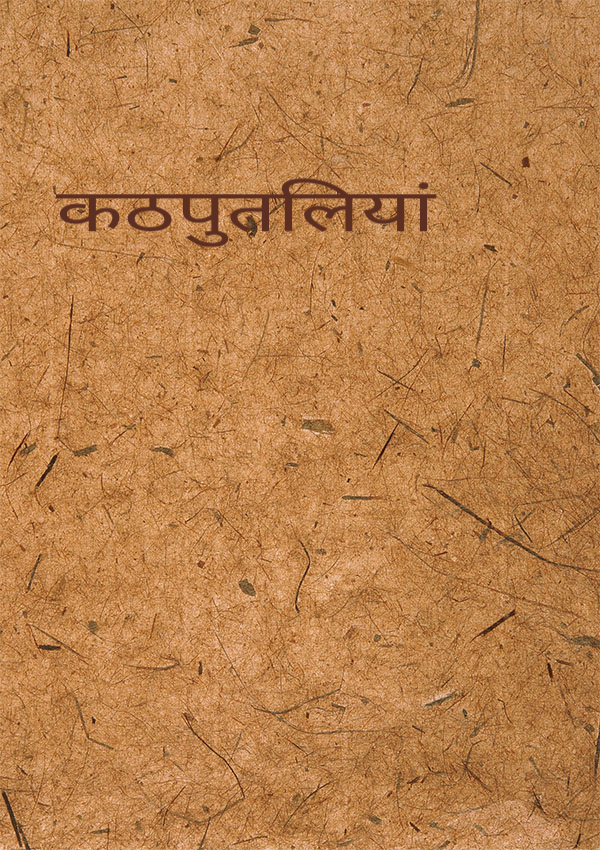 कठपुतलियां